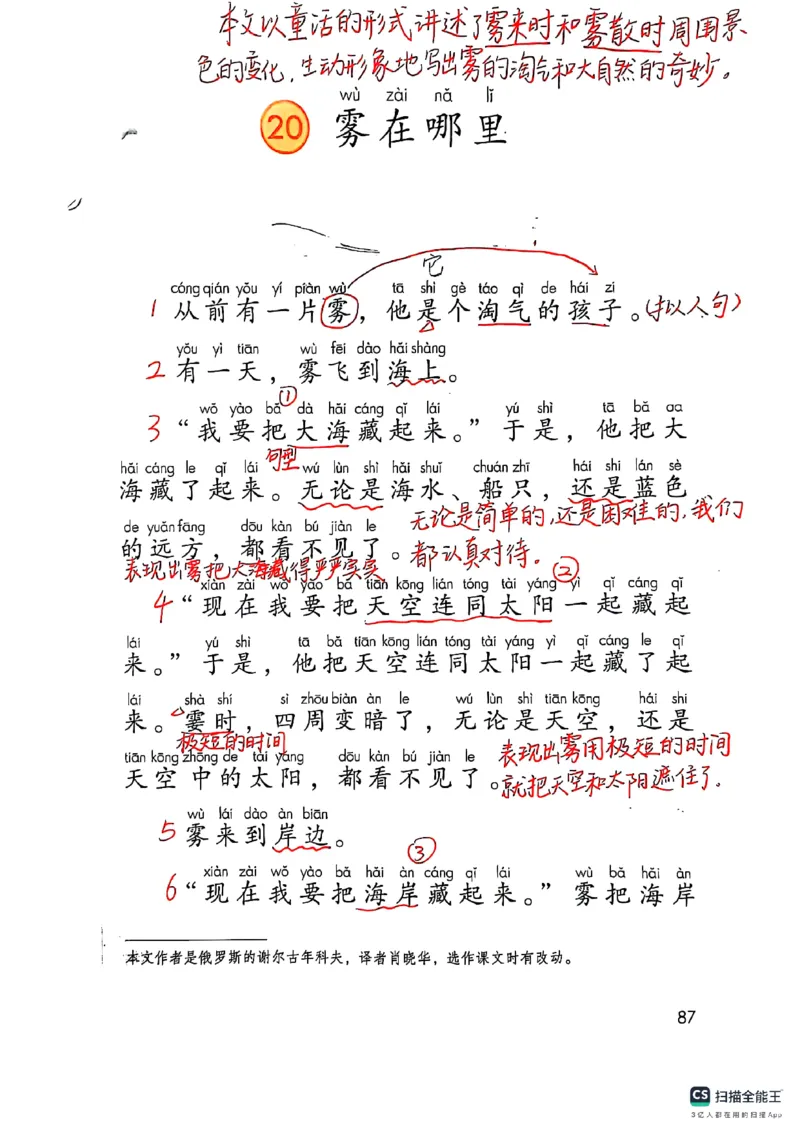 本文以童话的形式讲述了雾来时和雾散时周围景
色的变化,生动形象地写出雾的淘气和大自然的奇妙。
wù zài nǎ lǐ
20 雾在哪里
它
cóng qián yǒu yí piàn wù tā shì gè táo qì de hái zi
1 从前有一片雾，他是个淘气的孩子。(拟人句)
yǒu yì tiān wù fēi dào hǎi shàng
2 有一天，雾飞到海上。
①
wǒ yào bǎ dà hǎi cáng qǐ lái yú shì tā bǎ dà
3 “我要把大海藏起来。”于是，他把大
句型
hǎi cáng le qǐ lái wú lùn shì hǎi shuǐ chuán zhī hái shi lán sè
海藏了起来。无论是海水、船只，还是蓝色
de yuǎn fāng dōu kàn bú jiàn le
无论是简单的,还是困难的,我们
的远方，都看不见了。都认真对待。
表现出雾把大海藏得严严实实
②
xiàn zài wǒ yào bǎ tiān kōng lián tóng tài yáng yì qǐ cáng qǐ
4 “现在我要把天空连同太阳一起藏起
lái yú shì tā bǎ tiān kōng lián tóng tài yáng yì qǐ cáng le qǐ
来。”于是，他把天空连同太阳一起藏了起
lái shà shí sì zhōu biàn àn le wú lùn shì tiān kōng hái shi
来。霎时，四周变暗了，无论是天空，还是
极短的时间
表现出雾用极短的时间
tiān kōng zhōng de tài yáng dōu kàn bú jiàn le
天空中的太阳，都看不见了。就把天空和太阳遮住了.
wù lái dào àn biān
5 雾来到岸边。
③
xiàn zài wǒ yào bǎ hǎi àn cáng qǐ lái wù bǎ hǎi àn
6 “现在我要把海岸藏起来。”雾把海岸
本文作者是俄罗斯的谢尔古年科夫，译者肖晓华，选作课文时有改动。
87
CS 扫描全能王
3亿人都在用的扫描App